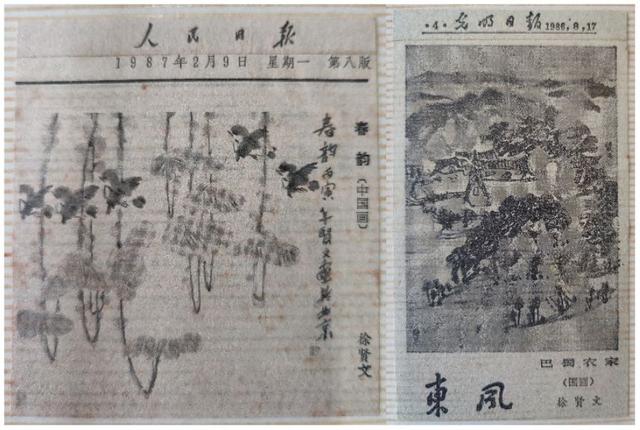 人民日报
1987年2月9日 星期一 第八版
春韵(中国画)
徐贤文
春韵丙寅年贤文画於北京
·4·光明日报 1986,8,17
巴蜀农家
(国画)
徐贤文
東风